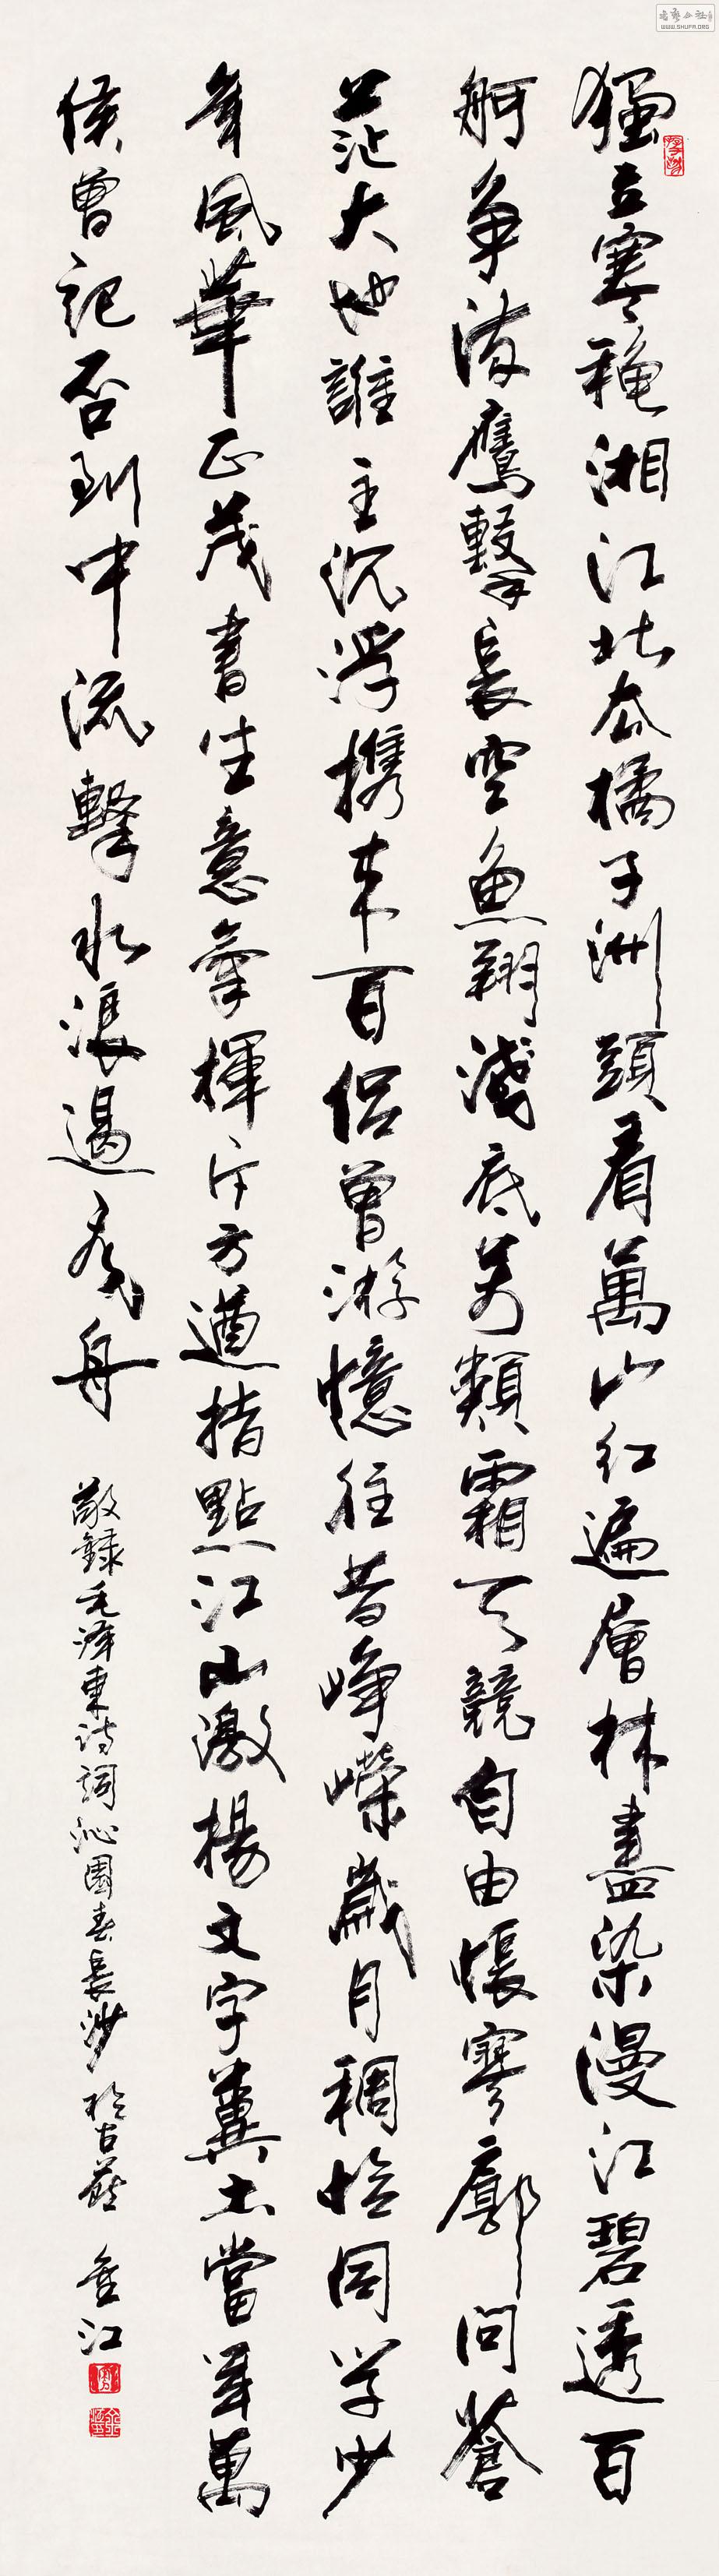 獨立寒穐湘江北去橘子洲頭看萬山紅遍層林盡染漫江碧透百
舸争流鷹擊長空魚翔淺底万類霜天競自由悵寥廓問蒼
茫大地誰主沉浮携来百侣曾游憶往昔峥嶸歲月稠恰同学少
年風華正茂書生意氣揮斥方遒指點江山激揚文字糞土當年萬
侯曾記否到中流擊水浪遏飛舟
敬録毛泽東诗詞沁園春長沙於古燕 金江
WWW.SHUFA.ORG